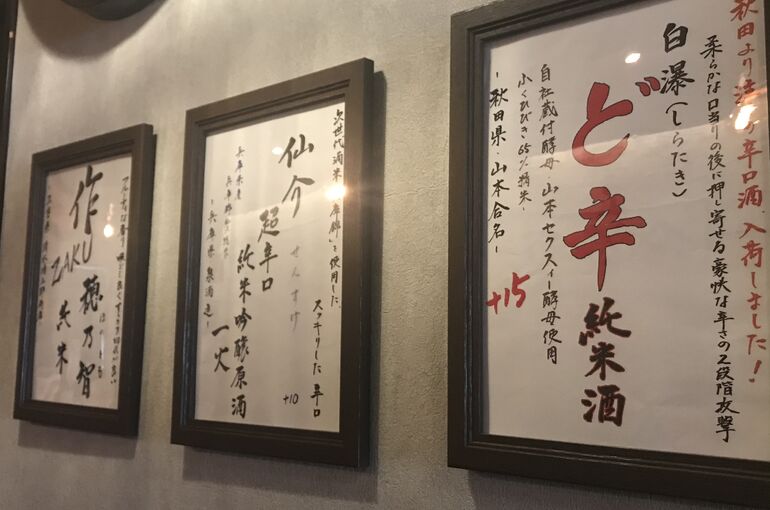 秋田より 辛口酒 入荷しました!
柔らかな口当りの後に押し寄せる豪快な辛さの2段階攻撃
白瀑(しらたき)
ど辛 純米酒
+15
自社蔵付酵母・山本セクスィー酵母使用
65%精米・
-秋田県・山本合名-
次世代酒米 を使用した
スッキリした辛口
仙介 せんすけ
+10
超辛口
純米吟醸原酒
一火
兵庫県産
-兵庫県・泉酒造-
作 穂乃智
ZAKU ほのとも
純米